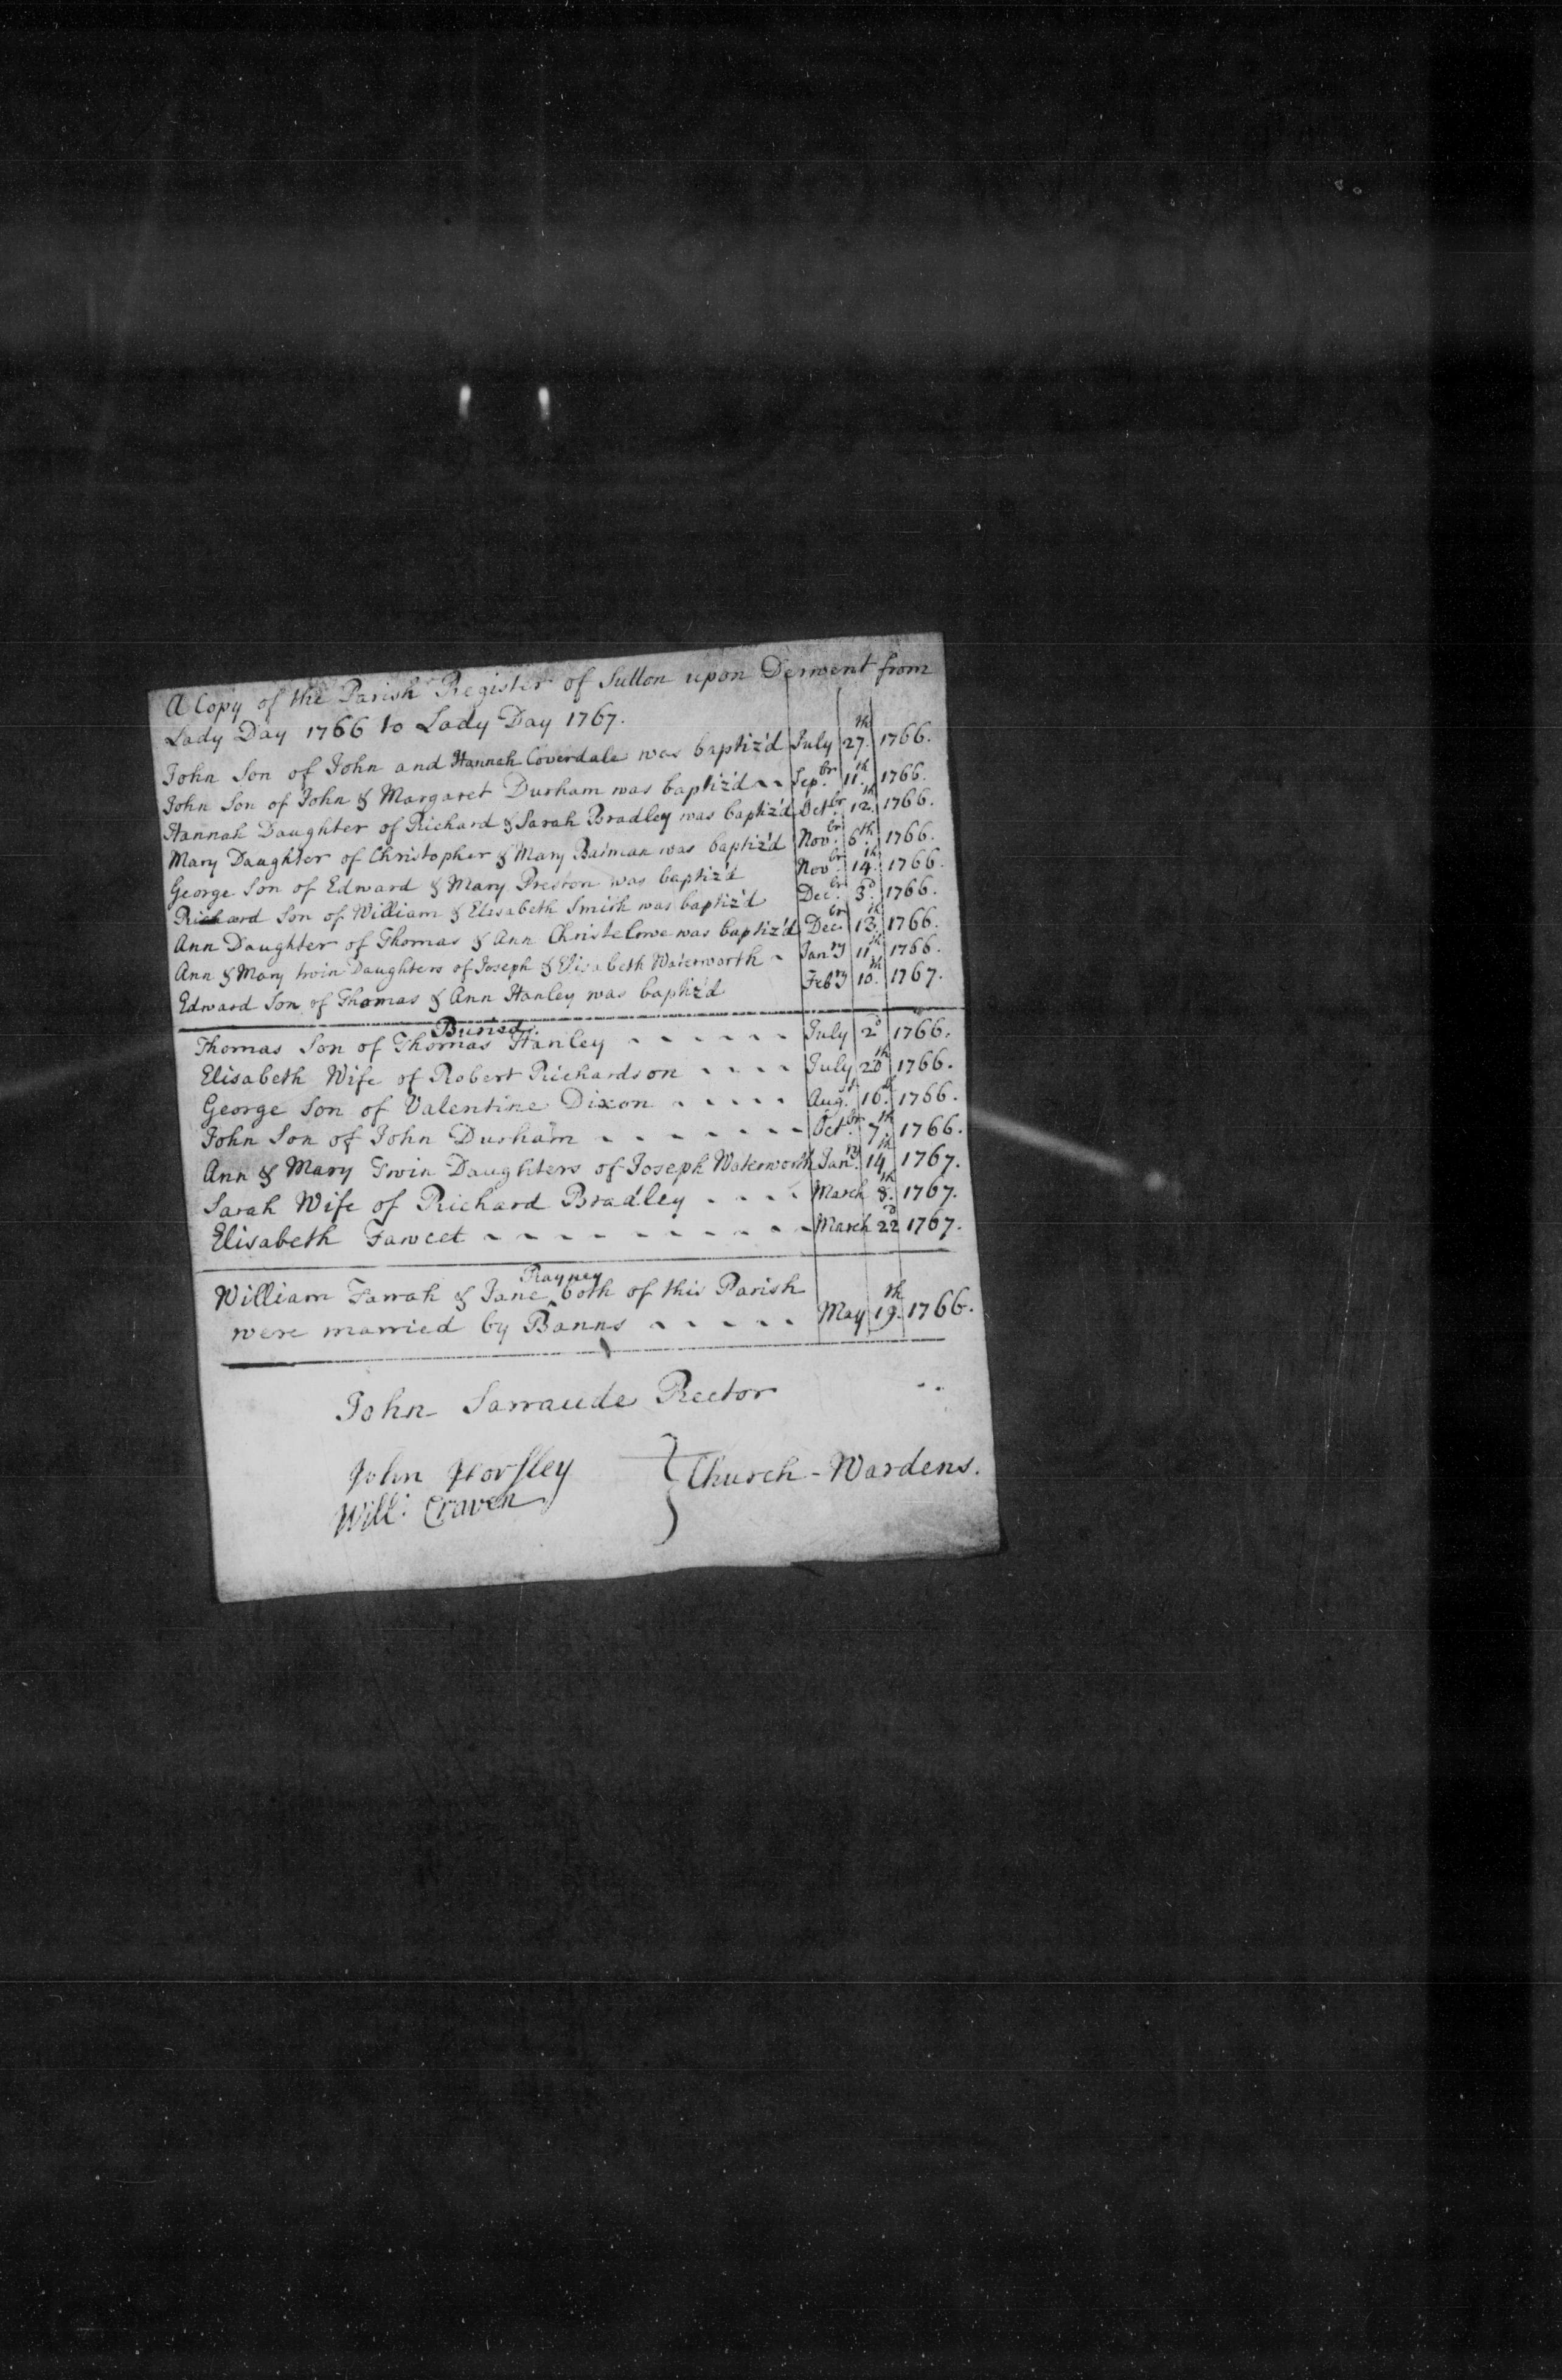 A Copy of the Parish Register of Sutton upon Derwent from
Lady Day 1766 to Lady Day 1767.
John Son of John and Hannah Coverdale was baptiz'd July 27.th 1766.
John Son of John & Margaret Durham was baptiz'd Sep.br 11.th 1766.
Hannah Daughter of Richard & Sarah Bradley was baptiz'd Oct.br 12.th 1766.
Mary Daughter of Christopher & Mary Batman was baptiz'd Nov.br 6.th 1766.
George Son of Edward & Mary Preston was baptiz'd Nov.br 14.th 1766.
Richard Son of William & Elisabeth Smith was baptiz'd Dec.br 3.d 1766.
Ann Daughter of Thomas & Ann Christelowe was baptiz'd Dec.br 13.th 1766.
Ann & Mary twin Daughters of Joseph & Elisabeth Waterworth Janry 11th 1766.
Edward Son of Thomas & Ann Hanley was baptiz'd Febry 10.th 1767.
Buried.
Thomas Son of Thomas Hanley July 2d 1766.
Elisabeth Wife of Robert Richardson July 20th 1766.
George Son of Valentine Dixon Aug.st 16.th 1766.
John Son of John Durham Oct.br 7.th 1766.
Ann & Mary Twin Daughters of Joseph Waterworth Jan.ry 14th 1767.
Sarah Wife of Richard Bradley March 8.th 1767.
Elisabeth Fawcet March 22d 1767.
William Farrah & Jane Rayney both of this Parish
were married by Banns May 19.th 1766.
John Sarraude Rector
John Horsley
Will: Craven
Church-Wardens.